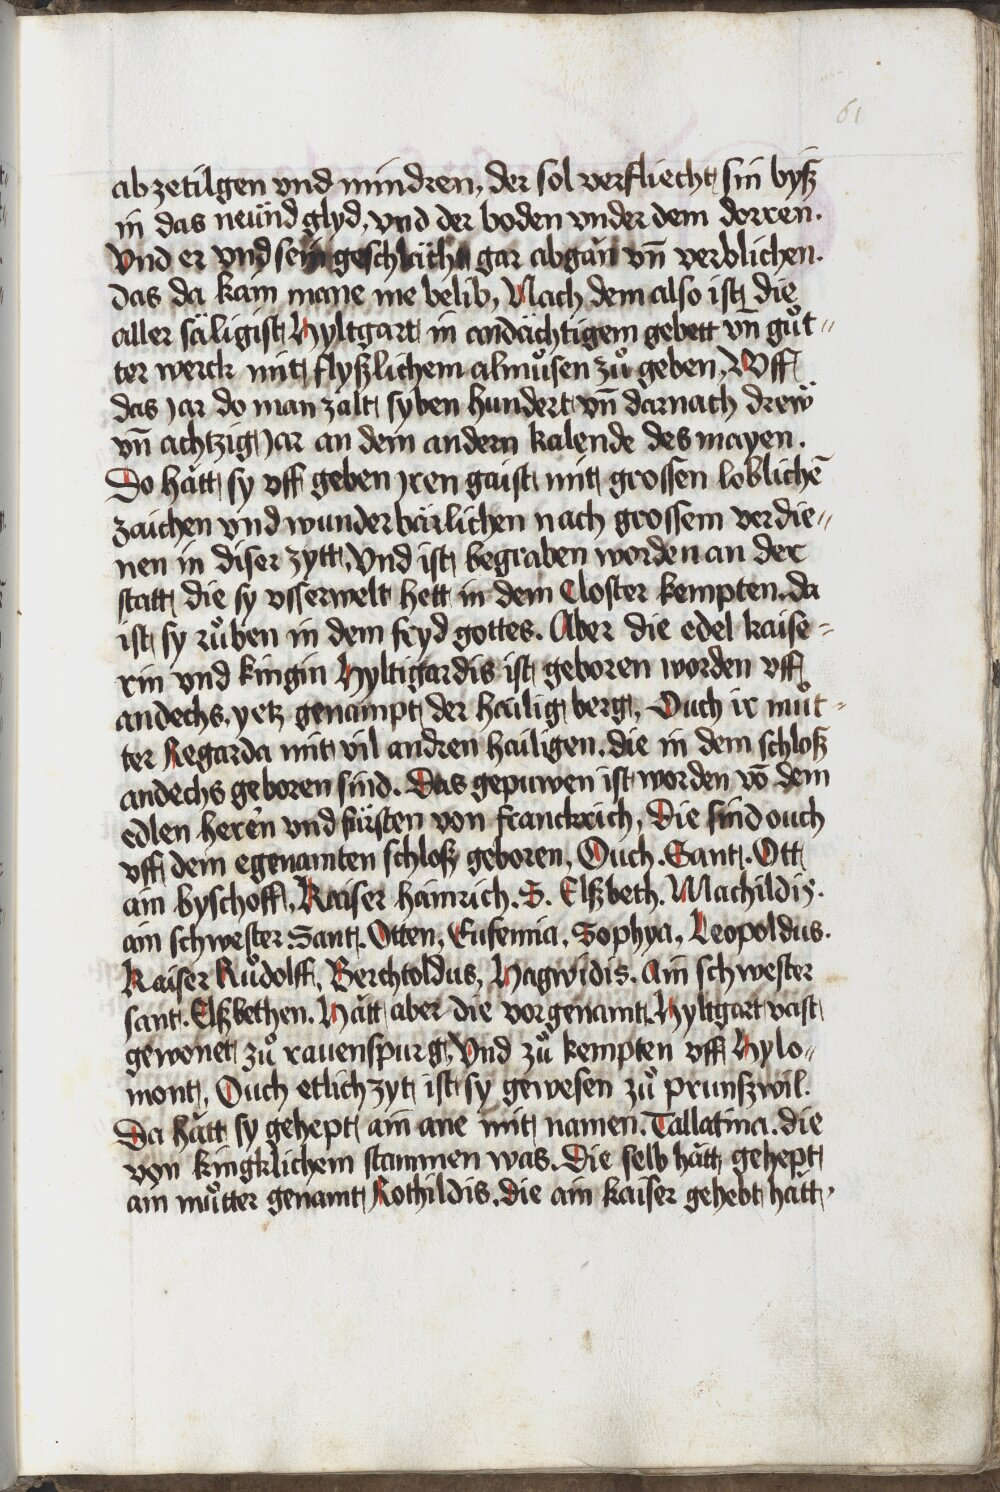 61
ab zetilgen vnd mindren, der sol verfliecht sin byß
in das neünd glyd, vnd der boden vnder dem dorren.
Vnd er vnd sein geschlächt gar abgän vn̄ verblichen.
Das da kain mane me belib, Nach dem also ist die
aller säligist Hyltgart in andächtigem gebett vn̄ gůt〃
ter werck mit flyßlichem almůsen zů geben, Vff
das jar do man zalt syben hundert vn̄ darnach drew
vn̄ achtzig jar an dem andern kalende des mayen.
Do hätt sy vff geben jren gaist mit grossen loblichē
zaichen vnd wunderbärlichen nach grossem verdie〃
nen in diser zytt, Vnd ist begraben worden an der
statt die sy vsserwelt hett in dem Closter kempten. da
ist sy růben in dem fryd gottes. Aber die edel kaise⸗
rin vnd kingin Hyltigardis ist geboren worden vff
andechs, yetz genampt der hailig berg, Ouch ir můt⸗
ter Regarda mit vil andren hailigen. die in dem schloß
andechs geboren sind. Das gepuwen ist worden vō dem
edlen heren vnd fürsten von franckrich, Die sind ouch
vff dem egenamten schloß geboren, Ouch. Sant. Ott
ain byschoff, Kaiser hainrich. S. Elßbeth. Machildis.
ain schwester Sant. Otten, Eufemia, Sophya, Leopoldus.
Kaiser Růdolff, Berchtoldus, Hagwidis. Ain schwester
sant. Elßbethen. Hätt aber die vorgenamt Hyltgart vast
gewonet zů rauenspurg, Vnd zů kempten vff Hylo〃
mont, Ouch etlich zyt ist sy gewesen zů prunßwil.
Da hätt sy gehept ain ane mit namen. Tallatina. die
von kingklichem stammen was. Die selb hätt gehept
ain můtter genamt Rothildis. die ain kaiser gehebt hätt,